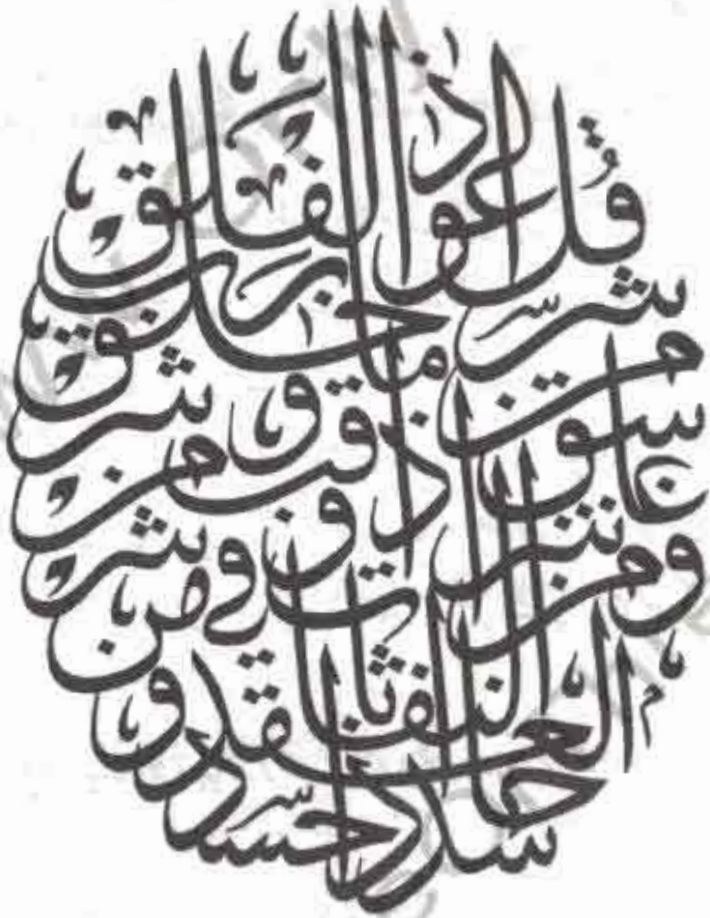 قُل اعوذ برب الفلق
من شر ما خلق
ومن شر غاسق اذا وقب
ومن شر النفاثات في العقد
ومن شر حاسد اذا حسد